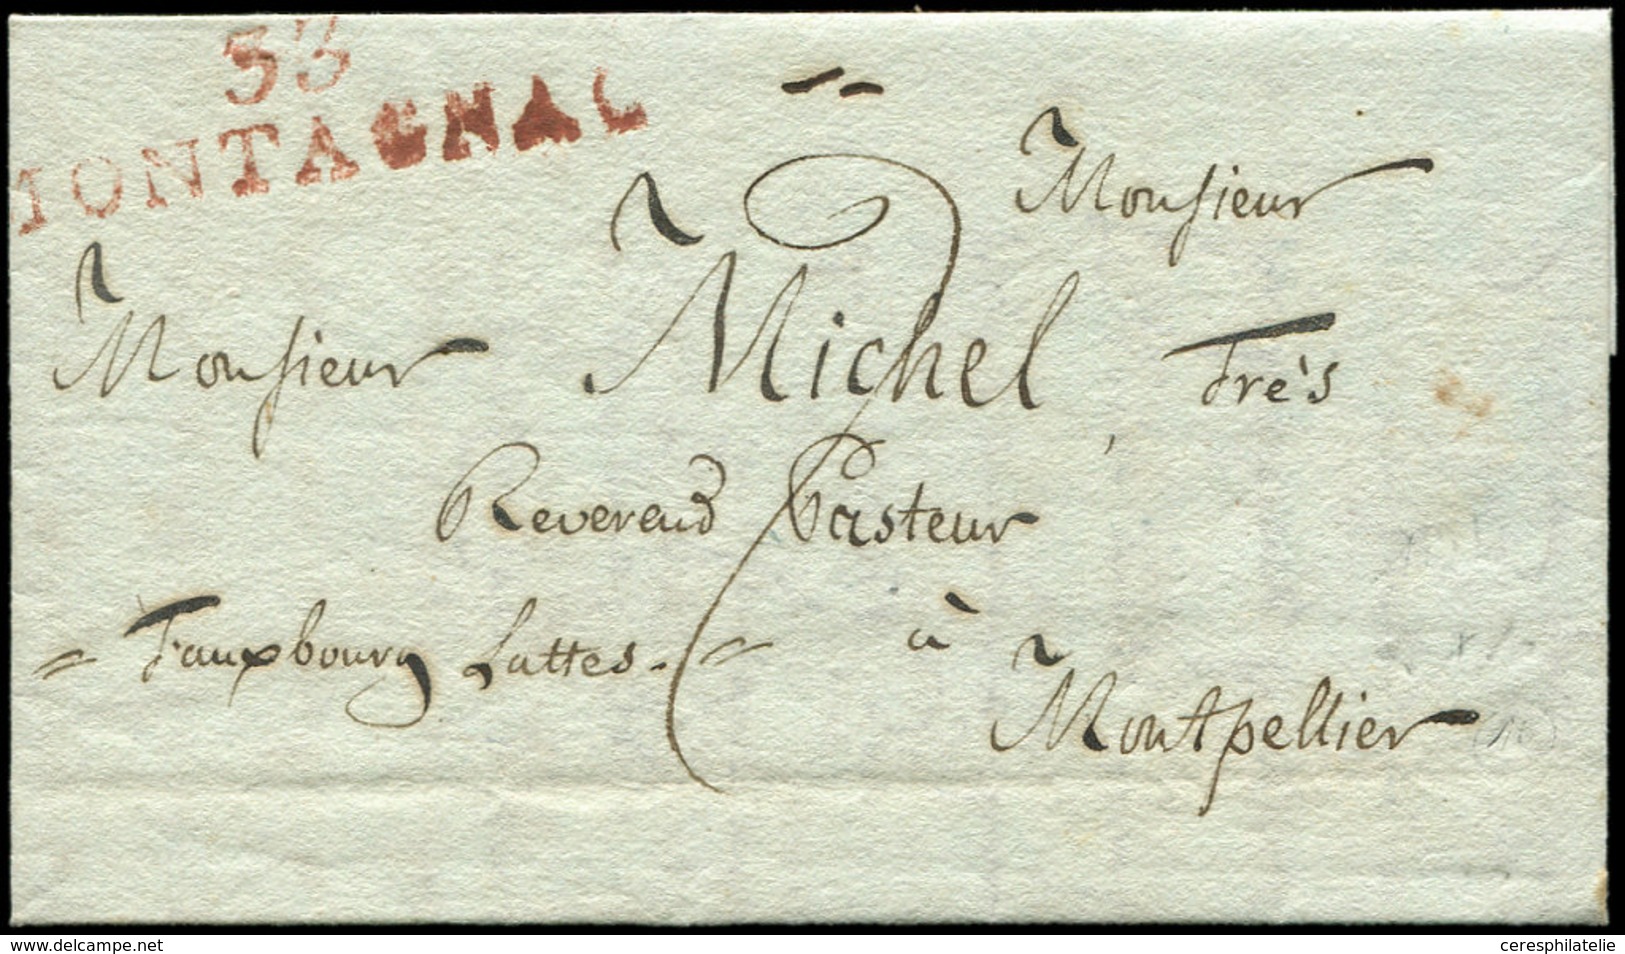 33
MONTAGNAC
Monsieur
Monsieur Michel Très
Reverend Pasteur
= Fauxbourg Lattes. =
à
Montpellier
www.delcampe.net
ceresphilatelie